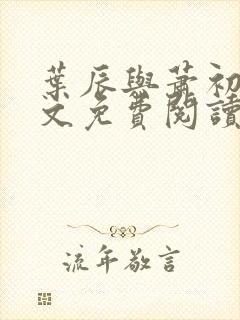 葉辰與蕭初
文免費閱讀
流年敬言